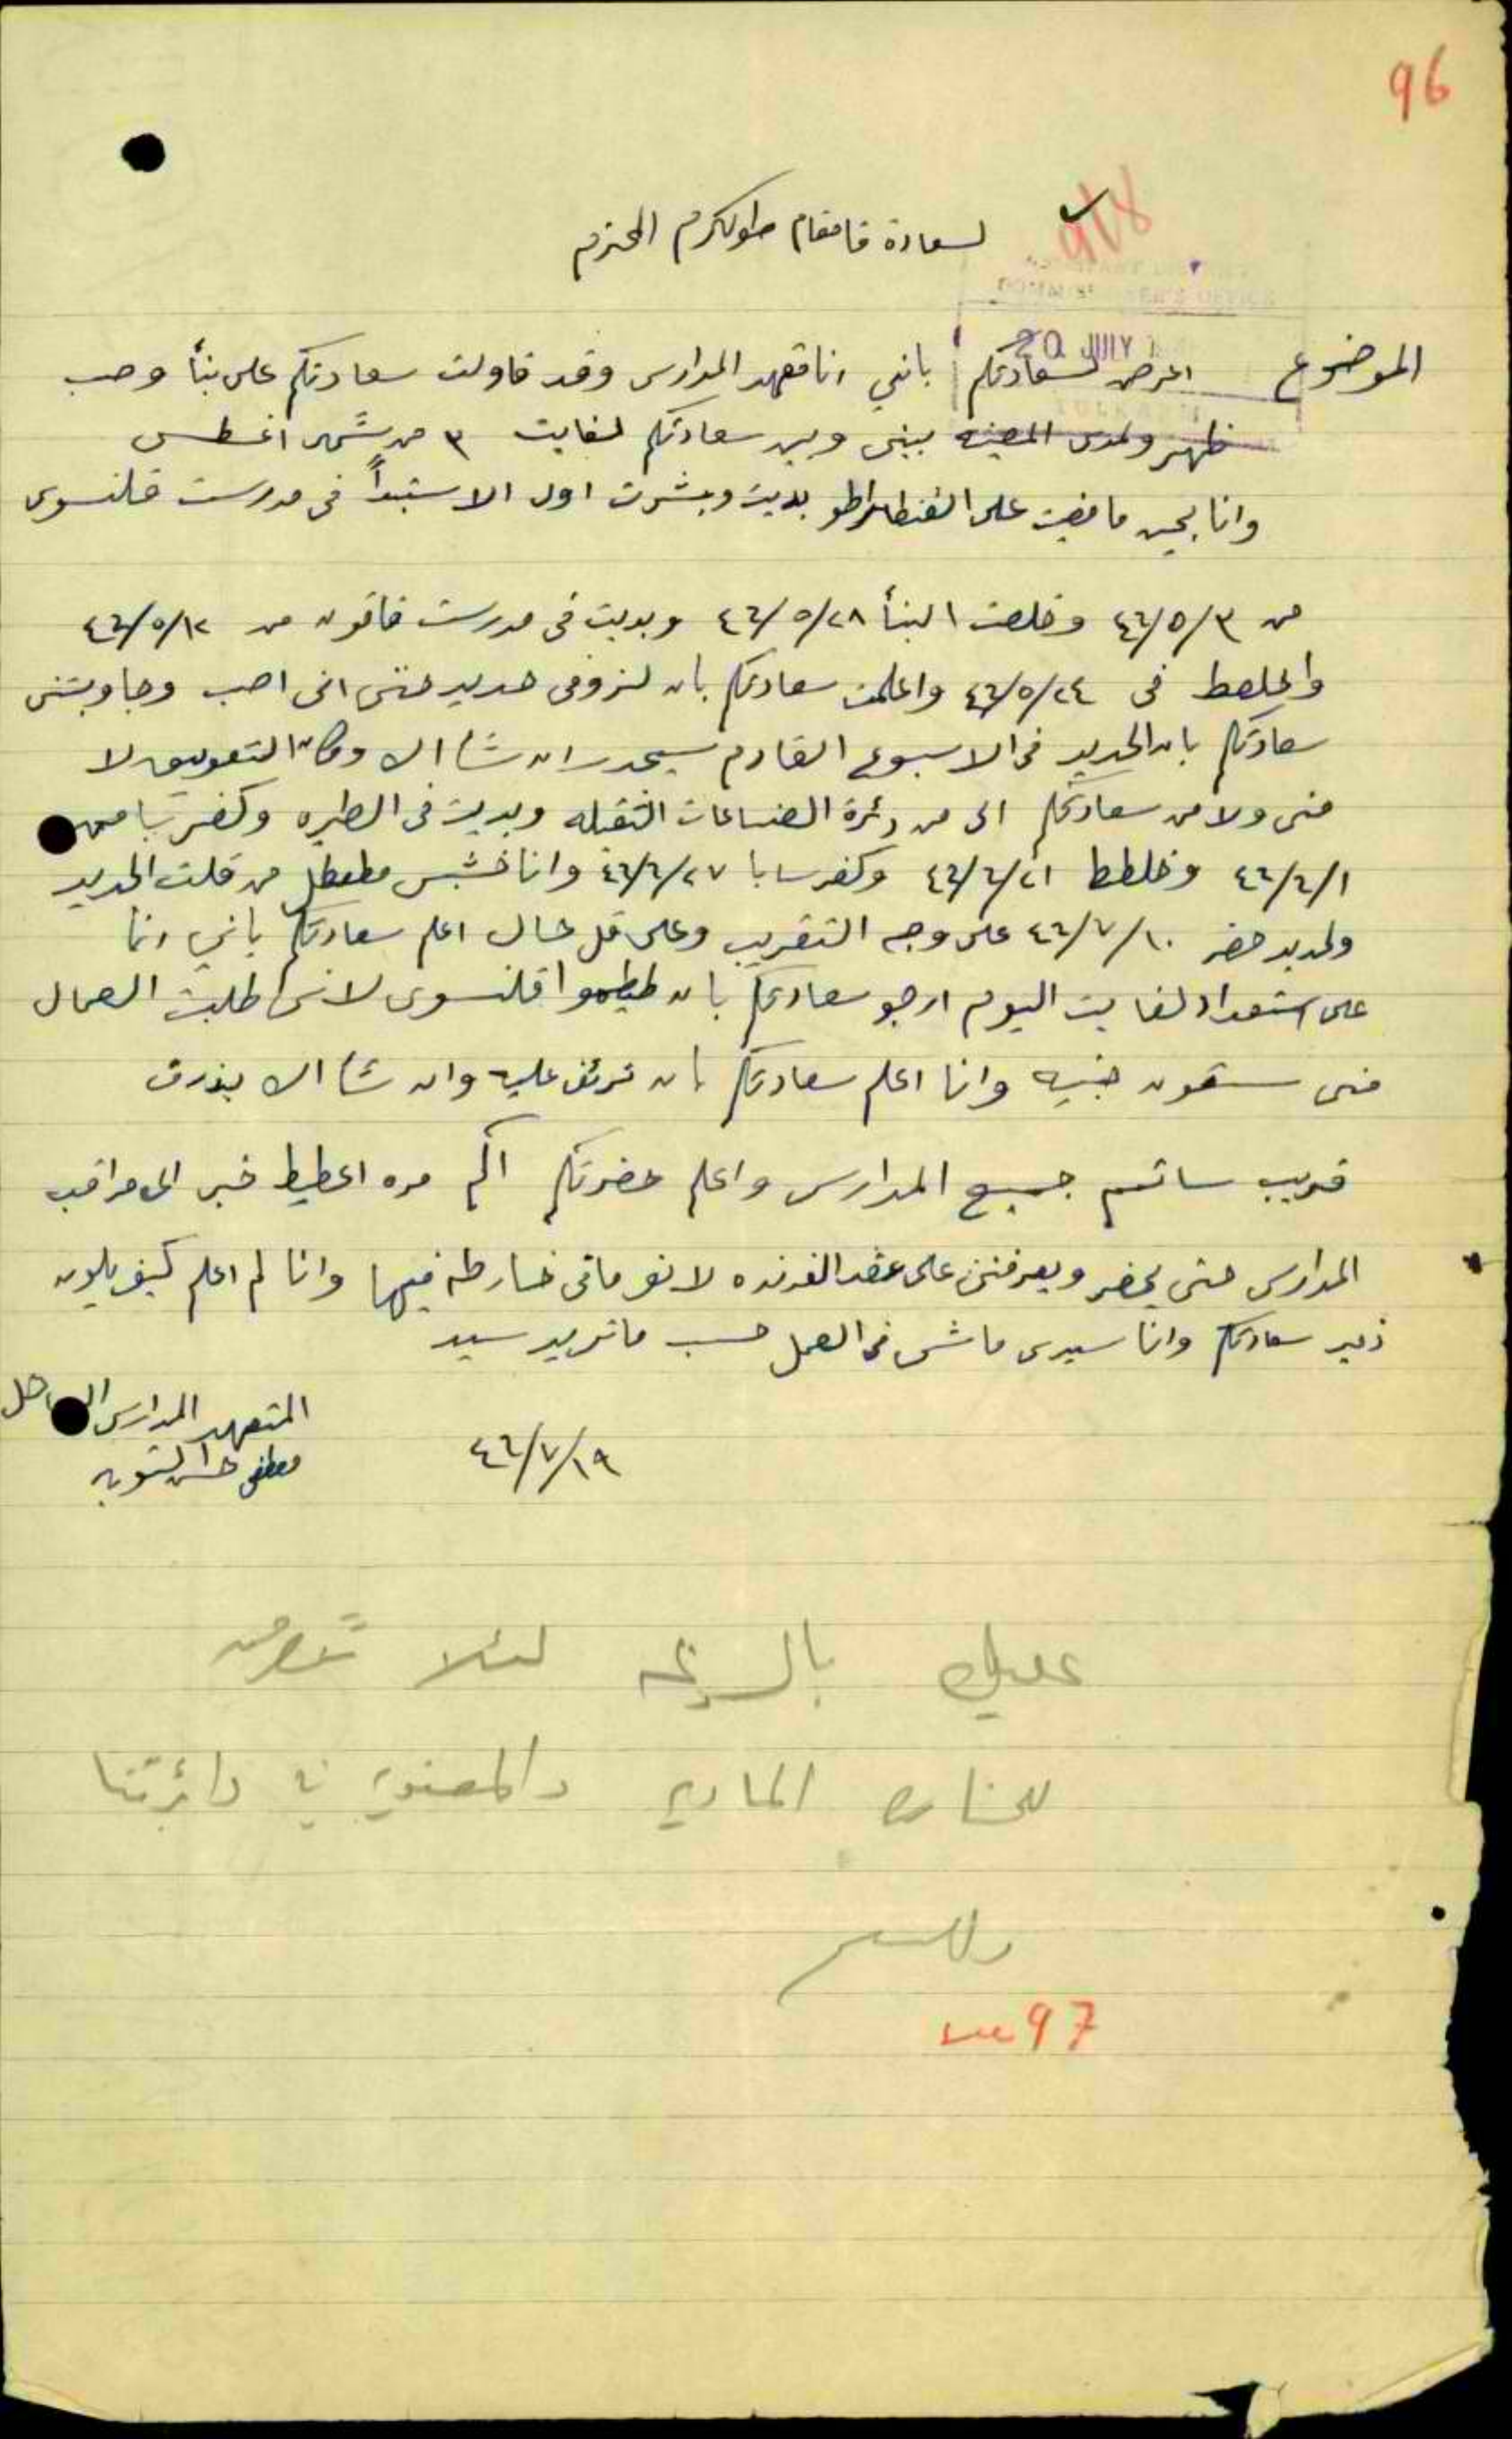 96
918
لسعادة قامقام طولكرم المحترم
COMMISSIONER'S OFFICE
20 JULY
TULKARM
الموضوع اعرض لسعادتكم بانني انا متعهد المدارس وقد قاولت سعادتكم على بنأ وصب
ظهر ولمدى المعينه بيني وبين سعادتكم لغايت ٣ من شهر اغسطس
وانا بحين مامضيت على القنطراطو بديت وبشرت اول الاستبدأ في مدرست قلنسوى
من ٤٦/٥/٣ وخلصت البنأ ٤٦/٥/٢٨ وبديت في مدرست قاقون من ٤٦/٥/١٢
في ٤٦/٥/٢٤ واعلمت سعادتكم بان لزومي حديد حتى اني اصب وجاوبتني
سعادتكم بان الحديد في الاسبوع القادم سيحدر ان شأ الا وكان التعويق لا
مني ولا من سعادتكم الى من دئرة الصناعات الثقيله وبديت في الطيره وكفر سابا من
٤٦/٦/١ وخلطط ٤٦/٦/٢١ وكفرسابا ٤٦/٦/٢٧ وانا خشبى معطل من قلت الحديد
ولحديد حضر ٤٦/٧/١٠ على وجه التقريب وعلى كل حال اعلم سعادتكم بانني انا
على استعداد لغايت اليوم ارجو سعادتكم بان قلنسوى لانى طلبت العمال
منى ستون جنيه وانا اعلم سعادتكم بان ترئف عليه وان شأ الا بذرف
قريب ساتمم جميع المدارس واعلم حضرتكم اكم مره اعطيط خبر الى مراقب
المدارس حتى يحضر ويعرفنى على عقد الفرنده لانو مافى خارطه فيها وانا لم اعلم كيف يكون
سعادتكم وانا سيدى ماشى في العمل حسب ماتريد سيد
المتعهد المدارس
مصطفى حسن
٤٦/٧/١٩
عليك بالسرعة لئلا تتعرض
للخساره المادية والمعنوية في دائرتنا
وللسم
97